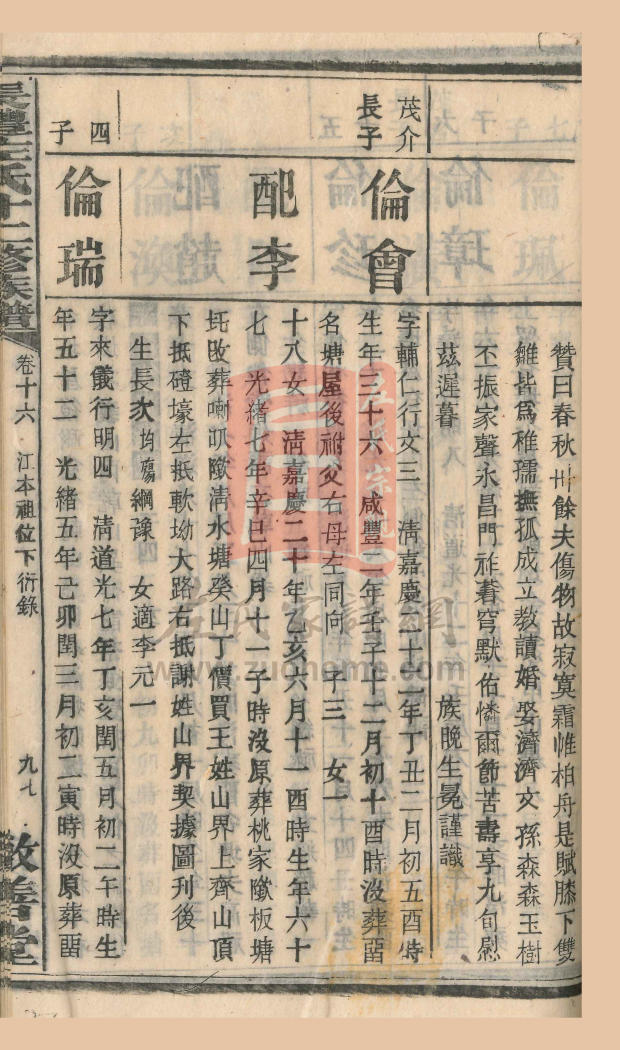 贊曰春秋卅餘夫傷物故寂寞霜帷柏舟是賦膝下雙
雛皆為稚孺撫孤成立教讀婚娶濟濟文孫森森玉樹
丕振家聲永昌門祚蒼穹默佑憐爾節苦壽享九旬慰
茲遲暮 族晚生冕謹識
茂介
長子
倫會
字輔仁行文三 清嘉慶二十二年丁丑二月初五酉時
生年三十六 咸豐二年壬子十二月初十酉時沒葬畱
名塘屋後祔父右母左同向 子三 女一
配李
十八女 清嘉慶二十年乙亥六月十一酉時生年六十
七 光緒七年辛巳四月十一子時沒原葬桃家隞板塘
圫改葬喇叭隞清水塘癸山丁價買王姓山界上齊山頂
下抵磴壕左抵軟坳大路右抵謝姓山界契據圖刊後
生長次均殤綱豫 女適李元一
四
子
倫瑞
字來儀行明四 清道光七年丁亥閏五月初二午時生
年五十二 光緒五年己卯閏三月初二寅時沒原葬畱
吳澧左氏十二修族譜
卷十六 江本祖位下衍錄
九七
敦善堂
左氏家譜網
www.zuohome.com